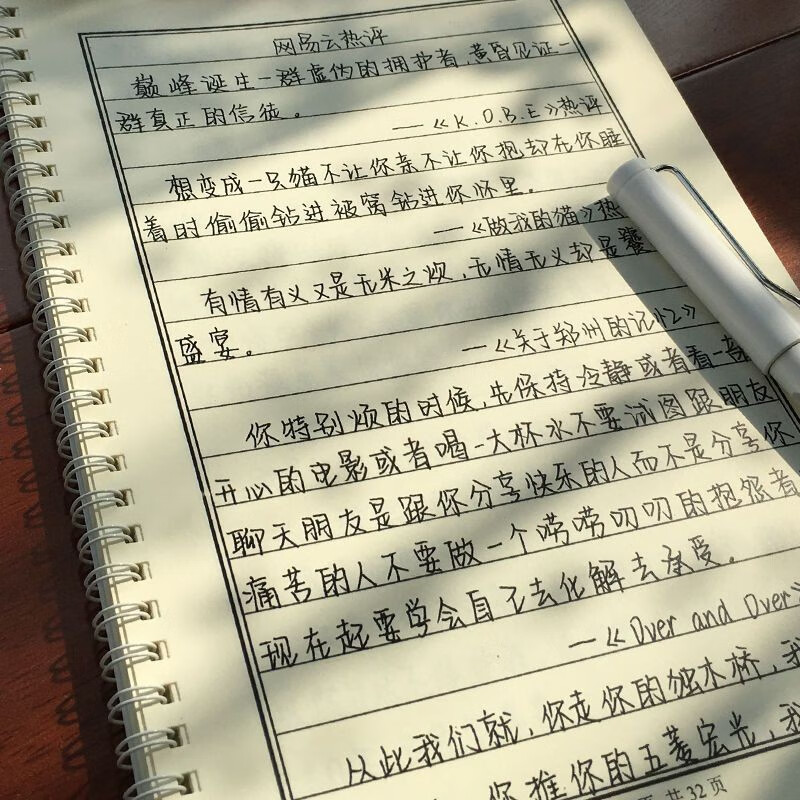 网易云热评
巅峰诞生一群虚伪的拥护者,黄昏见证一
群真正的信徒。
——《K.O.B.E》热评
想变成一只猫不让你亲不让你抱却在你睡
着时偷偷钻进被窝钻进你怀里。
——《做我的猫》热
有情有义又是无米之炊,无情无义却是饕
盛宴。
——《关于郑州的记忆》
你特别烦的时候,先保持冷静或者看一部
开心的电影或者喝一大杯水不要试图跟朋友
聊天朋友是跟你分享快乐的人而不是分享你
痛苦的人不要做一个唠唠叨叨的抱怨者
现在起要学会自己去化解去承受。
——《Over and Over》
从此我们就,你走你的独木桥,我
你推你的五菱宏光,我
共32页